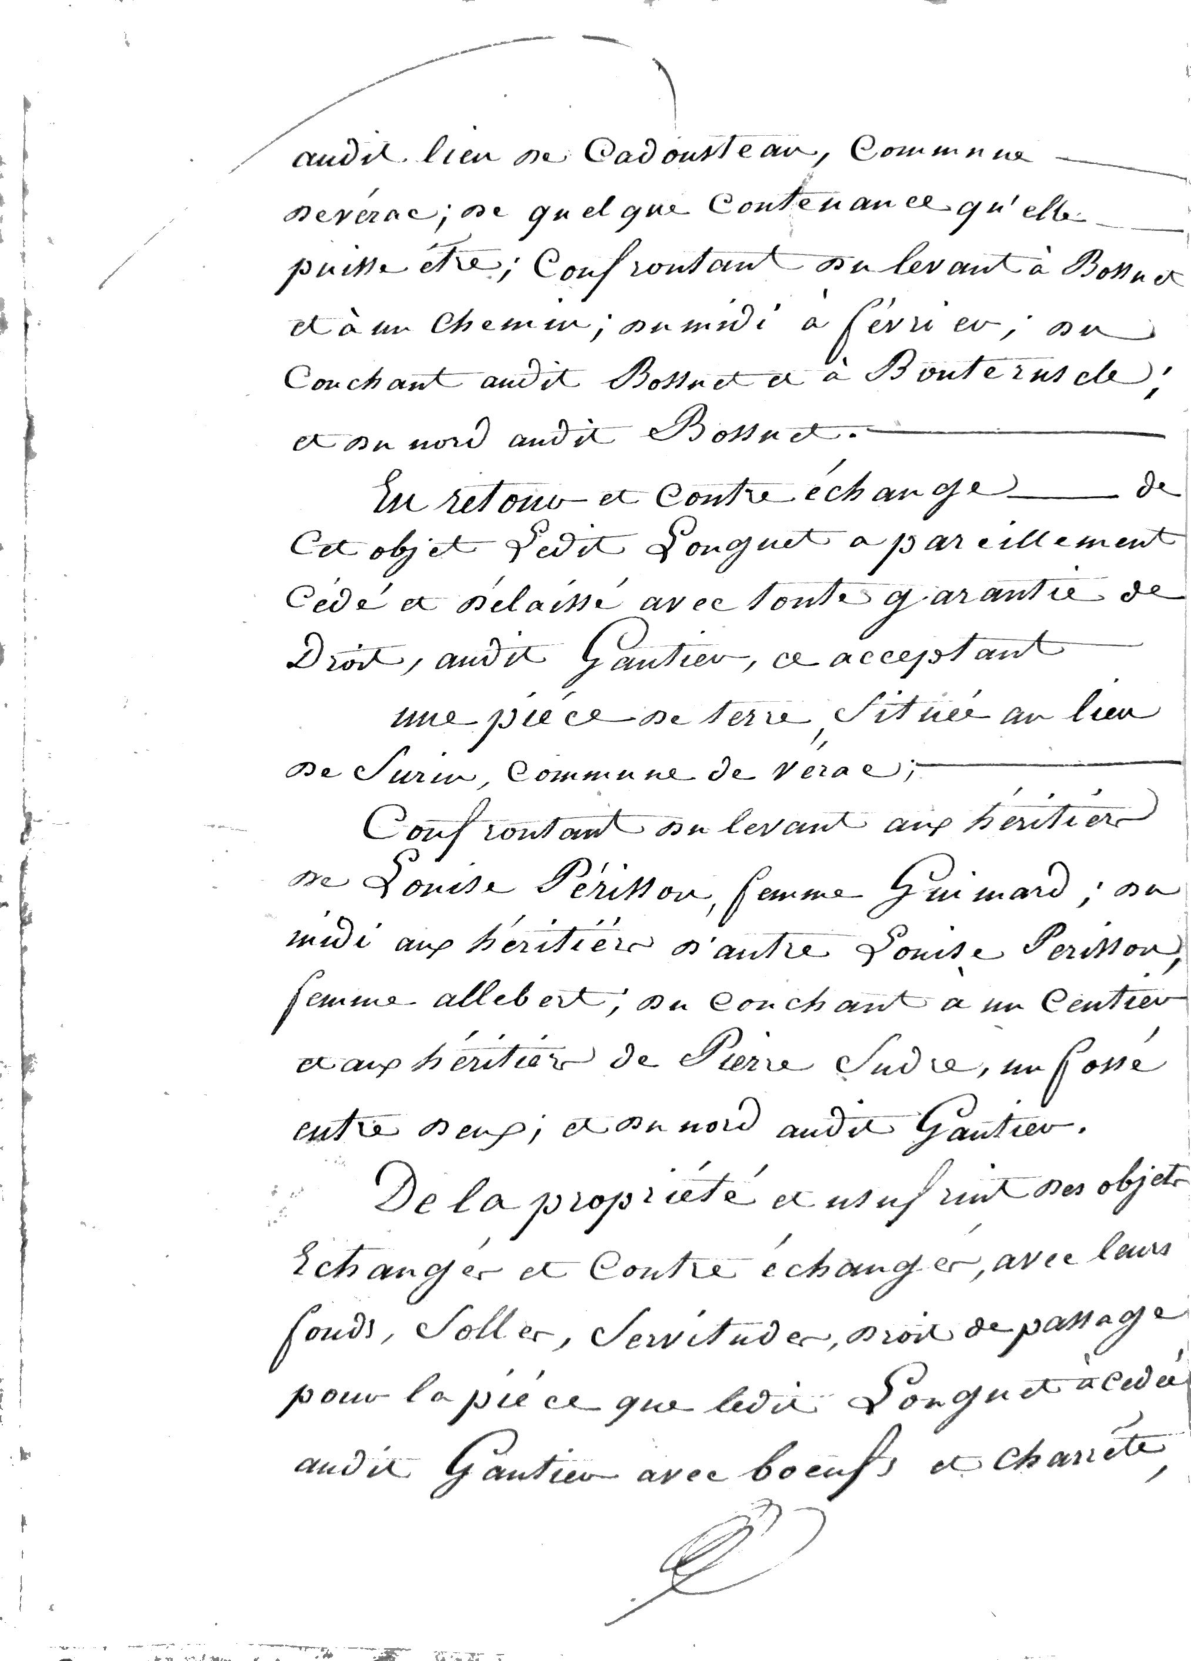 audit lieu de Cadousteau, Commune
de vérac; de quelque Contenance qu'elle
puisse étre; Confrontant du levant à Bossuet
et à un Chemin; du midi à février; du
Couchant audit Bossuet et à Bouteruscle;
et du nord audit Bossuet.
En retour et Contre échange de
Cet objet Ledit Longuet a pareillement
Cédé et délaissé avec toute garantie de
Droit, audit Gautier, ce acceptant
une piéce de terre, Située au lieu
de Surin, Commune de Vérac;
Confrontant du levant aux héritiers
de Louise Périsson, femme Guimard; du
midi aux héritiérs d'autre Louise Perisson,
femme allebert; du Couchant à un Centier
et aux héritiérs de Pierre Sudre, un fossé
entre deux; et du nord audit Gautier.
De la propriété et usufruit des objets
Echangés et Contre échangés, avec leurs
fonds, Solles, Servitudes, droit de passage
pour la piéce que ledit Longuet à Cedée
audit Gautier avec boeufs et Charrète,